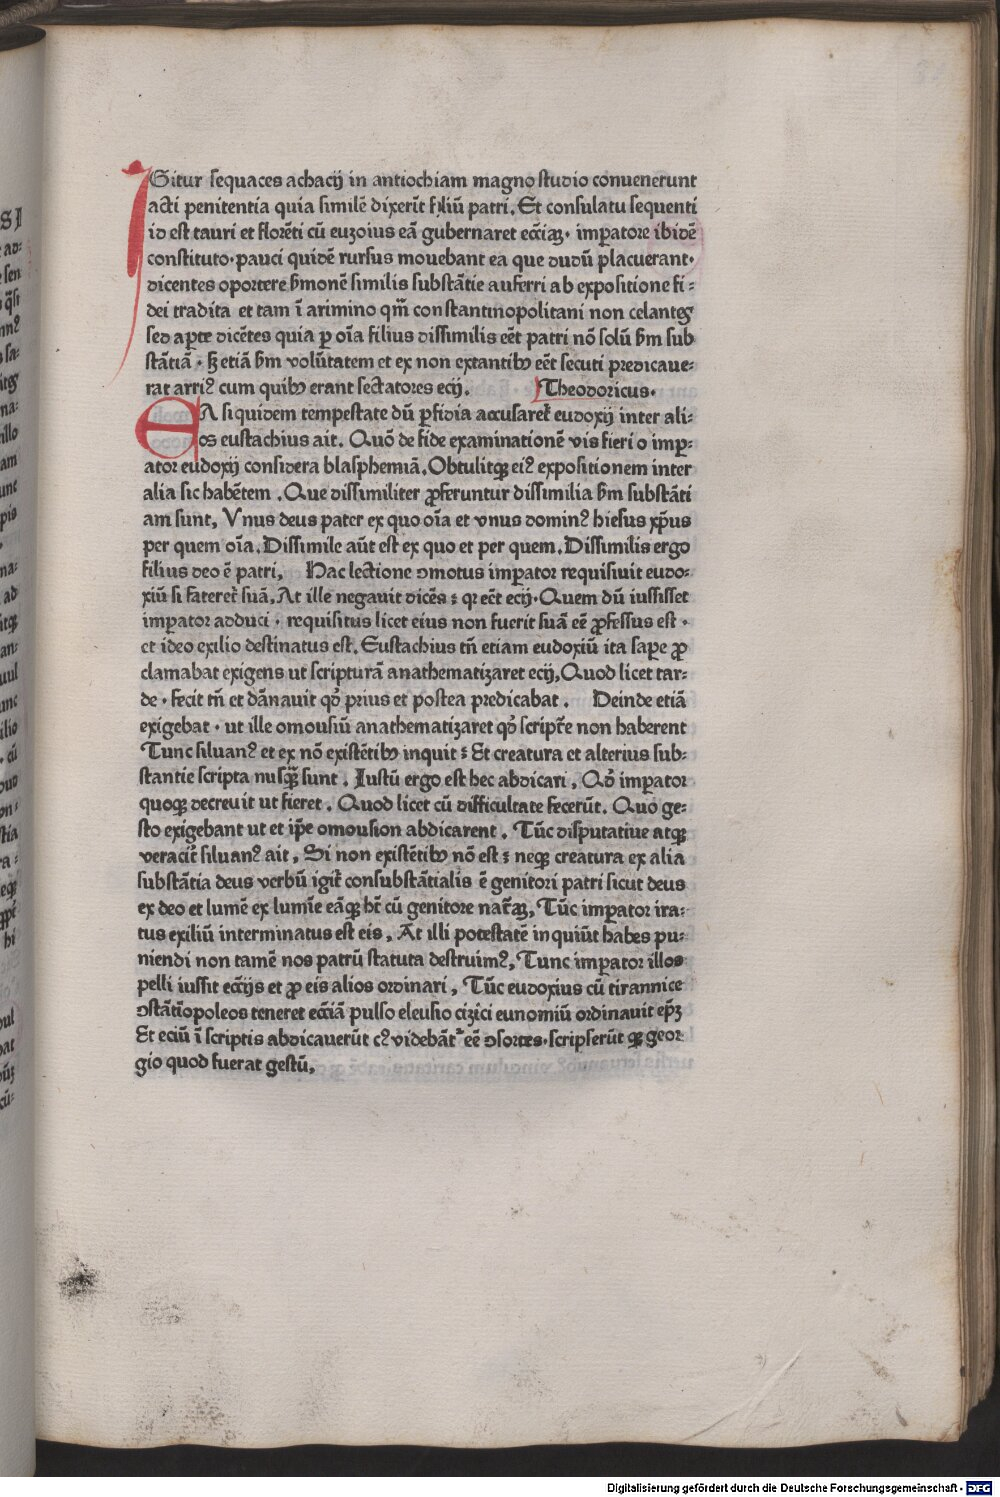 IGitur sequaces achacij in antiochiam magno studio convenerunt
acti penitentia quia similē dixerīt filiū patri. Et consulatu sequenti
id est tauri et florēti cū euzoius eā gubernaret eccīaꝫ. imperatore ibidē
constituto. pauci quidē rursus mouebant ea que dudū placuerant.
dicentes oportere sermonē similis substātie auferri ab expositione fi-
dei tradita et tam ī arimino qm̄ constantinopolitani non celantes
sed aperte dicētes quia per oīa filius dissimilis eēt patri nō solū sm sub
stātiā. sꝫ etiā sm volūtatem et ex non extantibꝰ eēt secuti predicaue-
rat arriꝰ cum quibꝰ erant sectatores ecij. Theodoricus.
EA siquidem tempestate dū perfidia accusaret᷑ eudoxij inter ali-
os eustachius ait. Quō de fide examinationē vis fieri o imper-
ator eudoxij considera blasphemiā. Obtulitqꝫ eiꝰ expositionem inter
alia sic habētem. Que dissimiliter ꝓferuntur dissimilia sm substāti
am sunt, Vnus deus pater ex quo oīa et vnus dominꝰ hiesus xp̄us
per quem oīa. Dissimile aūt est ex quo et per quem. Dissimilis ergo
filius deo ē patri, Hac lectione ɔmotus imperator requisiuit eudo-
xiū si fateret᷑ suā. At ille negauit dicēs : qꝛ eēt ecij. Quem dū iussisset
imperator adduci. requisitus licet eius non fuerit suā eē ꝓfessus est.
et ideo exilio destinatus est. Eustachius tn̄ etiam eudoxiū ita sape ꝓ
clamabat exigens ut scripturā anathematizaret ecij, Quod licet tar-
de. fecit tn̄ et dānauit qđ prius et postea predicabat. Deinde etiā
exigebat. ut ille omousiū anathematizaret qđ scripte non haberent
Tunc siluanꝰ et ex nō existētibꝰ inquit : Et creatura et alterius sub-
stantie scripta nusqꝫ sunt. Iustū ergo est hec abdicari, Qđ imperator
quoqꝫ decreuit ut fieret. Quod licet cū difficultate fecerūt. Quo ge-
sto exigebant ut et ip̄e omousion abdicarent. Tūc disputatiue atqꝫ
veracit᷑ siluanꝰ ait, Si non existētibꝰ nō est : neqꝫ creatura ex alia
substātia deus verbū igit᷑ consubstātialis ē genitori patri sicut deus
ex deo et lumē ex lumīe eāqꝫ hꝫ cū genitore nat᷑aꝫ, Tūc imperator ira-
tus exiliū interminatus est eis, At illi potestatē inquiūt habes pu-
niendi non tamē nos patrū statuta destruimꝰ, Tunc imperator illos
pelli iussit eccīijs et ꝓ eis alios ordinari, Tūc eudoxius cū tirannice
ɔstātīopoleos teneret eccīiā pulso eleusio cizici eunomiū ordinauit ep̄ꝫ
Et eciū ī scriptis abdicauerūt cꝰ videbāt᷑ eē ɔsortes. scripserūt qꝫ geor
gio quod fuerat gestū,
Digitalisierung gefördert durch die Deutsche Forschungsgemeinschaft - DFG